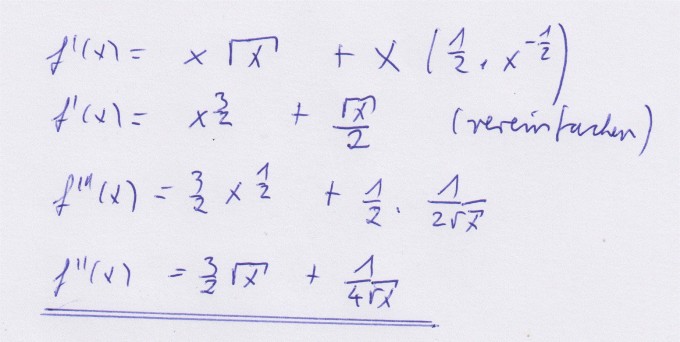 f'(x) = x √x + x (1/2 · x^(-1/2))
f'(x) = x^(3/2) + √x/2 (vereinfachen)
f'''(x) = 3/2 x^(1/2) + 1/2 · 1/(2√x)
f''(x) = 3/2 √x + 1/(4√x)